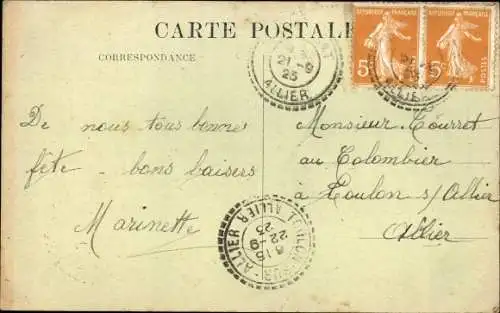 CARTE POSTALE
CORRESPONDANCE
21-9
25
ALLIER
REPUBLIQUE FRANÇAISE
5c
REPUBLIQUE FRANÇAISE
5c
ALLIER
De nous tous bonne
fête - bons baisers
Marinette
Monsieur Tourret
au Colombier
à Toulon s/Allier
Allier
TOULON-SUR-ALLIER
6-15
22-9
25
ALLIER